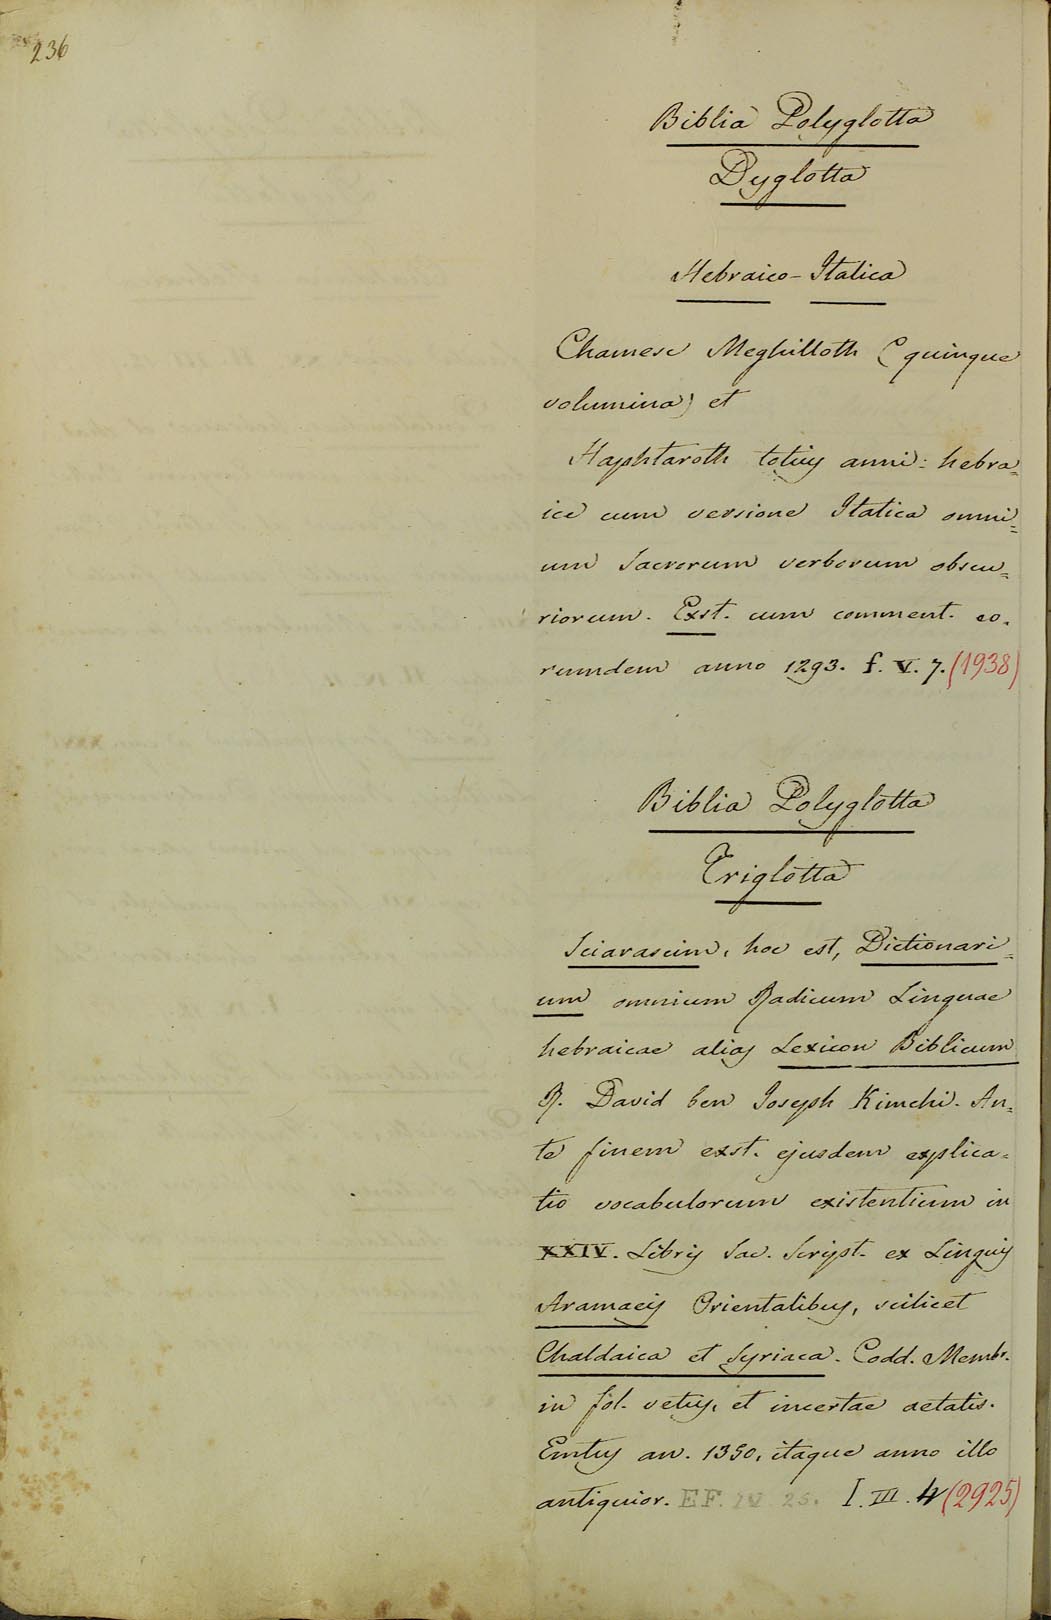 236
Biblia Polyglotta
Dyglotta
Hebraico-Italica
Chamesc Meghilloth (quinque
volumina) et
Haphtaroth totius anni: hebra=
ice cum versione Italica omni=
um Sacrorum verborum obscu=
riorum. Exst. cum comment. eo=
rumdem anno 1293. f. V. 7. (1938)
Biblia Polyglotta
Triglotta
Sciarascim, hoc est, Dictionari=
um omnium Radicum Linguae
hebraicae alias Lexicon Biblicum
R. David ben Joseph Kimchi. An=
te finem exst. ejusdem explica=
tio vocabulorum existentium in
XXIV. Libris Sac. Script. ex Linguis
Aramaeis Orientalibus, scilicet
Chaldaica et Syriaca. Codd. Membr.
in fol. vetus, et incertae aetatis.
Emtus an. 1350, itaque anno illo
antiquior. EF. IV. 25. I. III. 4 (2925)